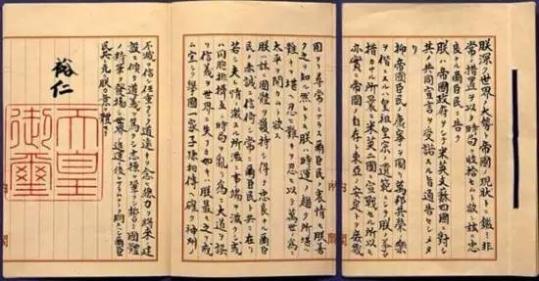 朕深ク世界ノ大勢ト帝國ノ現状トニ鑑ミ非
常ノ措置ヲ以テ時局ヲ收拾セムト欲シ茲ニ忠
良ナル爾臣民ニ告ク
朕ハ帝國政府ヲシテ米英支蘇四國ニ對シ
其ノ共同宣言ヲ受諾スル旨通告セシメタリ
抑〻帝國臣民ノ康寧ヲ圖リ萬邦共榮ノ樂
ヲ偕ニスルハ皇祖皇宗ノ遺範ニシテ朕ノ拳々
措カサル所曩ニ米英二國ニ宣戰セル所以モ
亦實ニ帝國ノ自存ト東亞ノ安定トヲ庶幾
固ヨリ尋常ニアラス爾臣民ノ衷情モ朕善
ク之ヲ知ル然レトモ朕ハ時運ノ趨ク所堪ヘ
難キヲ堪ヘ忍ヒ難キヲ忍ヒ以テ萬世ノ爲ニ
太平ヲ開カムト欲ス
朕ハ茲ニ國體ヲ護持シ得テ忠良ナル爾臣
民ノ赤誠ニ信倚シ常ニ爾臣民ト共ニ在リ
若シ夫レ情ノ激スル所濫ニ事端ヲ滋クシ或
ハ同胞排擠互ニ時局ヲ亂リ爲ニ大道ヲ誤
リ信義ヲ世界ニ失フカ如キハ朕最モ之ヲ戒
ム宜シク擧國一家子孫相傳ヘ確ク神州ノ
不滅ヲ信シ任重クシテ道遠キヲ念ヒ總力ヲ將來ノ建
設ニ傾ケ道義ヲ篤クシ志操ヲ鞏クシ誓テ國體
ノ精華ヲ發揚シ世界ノ進運ニ後レサラムコトヲ期スヘシ爾臣
民其レ克ク朕カ意ヲ體セヨ
裕仁
天皇
御璽